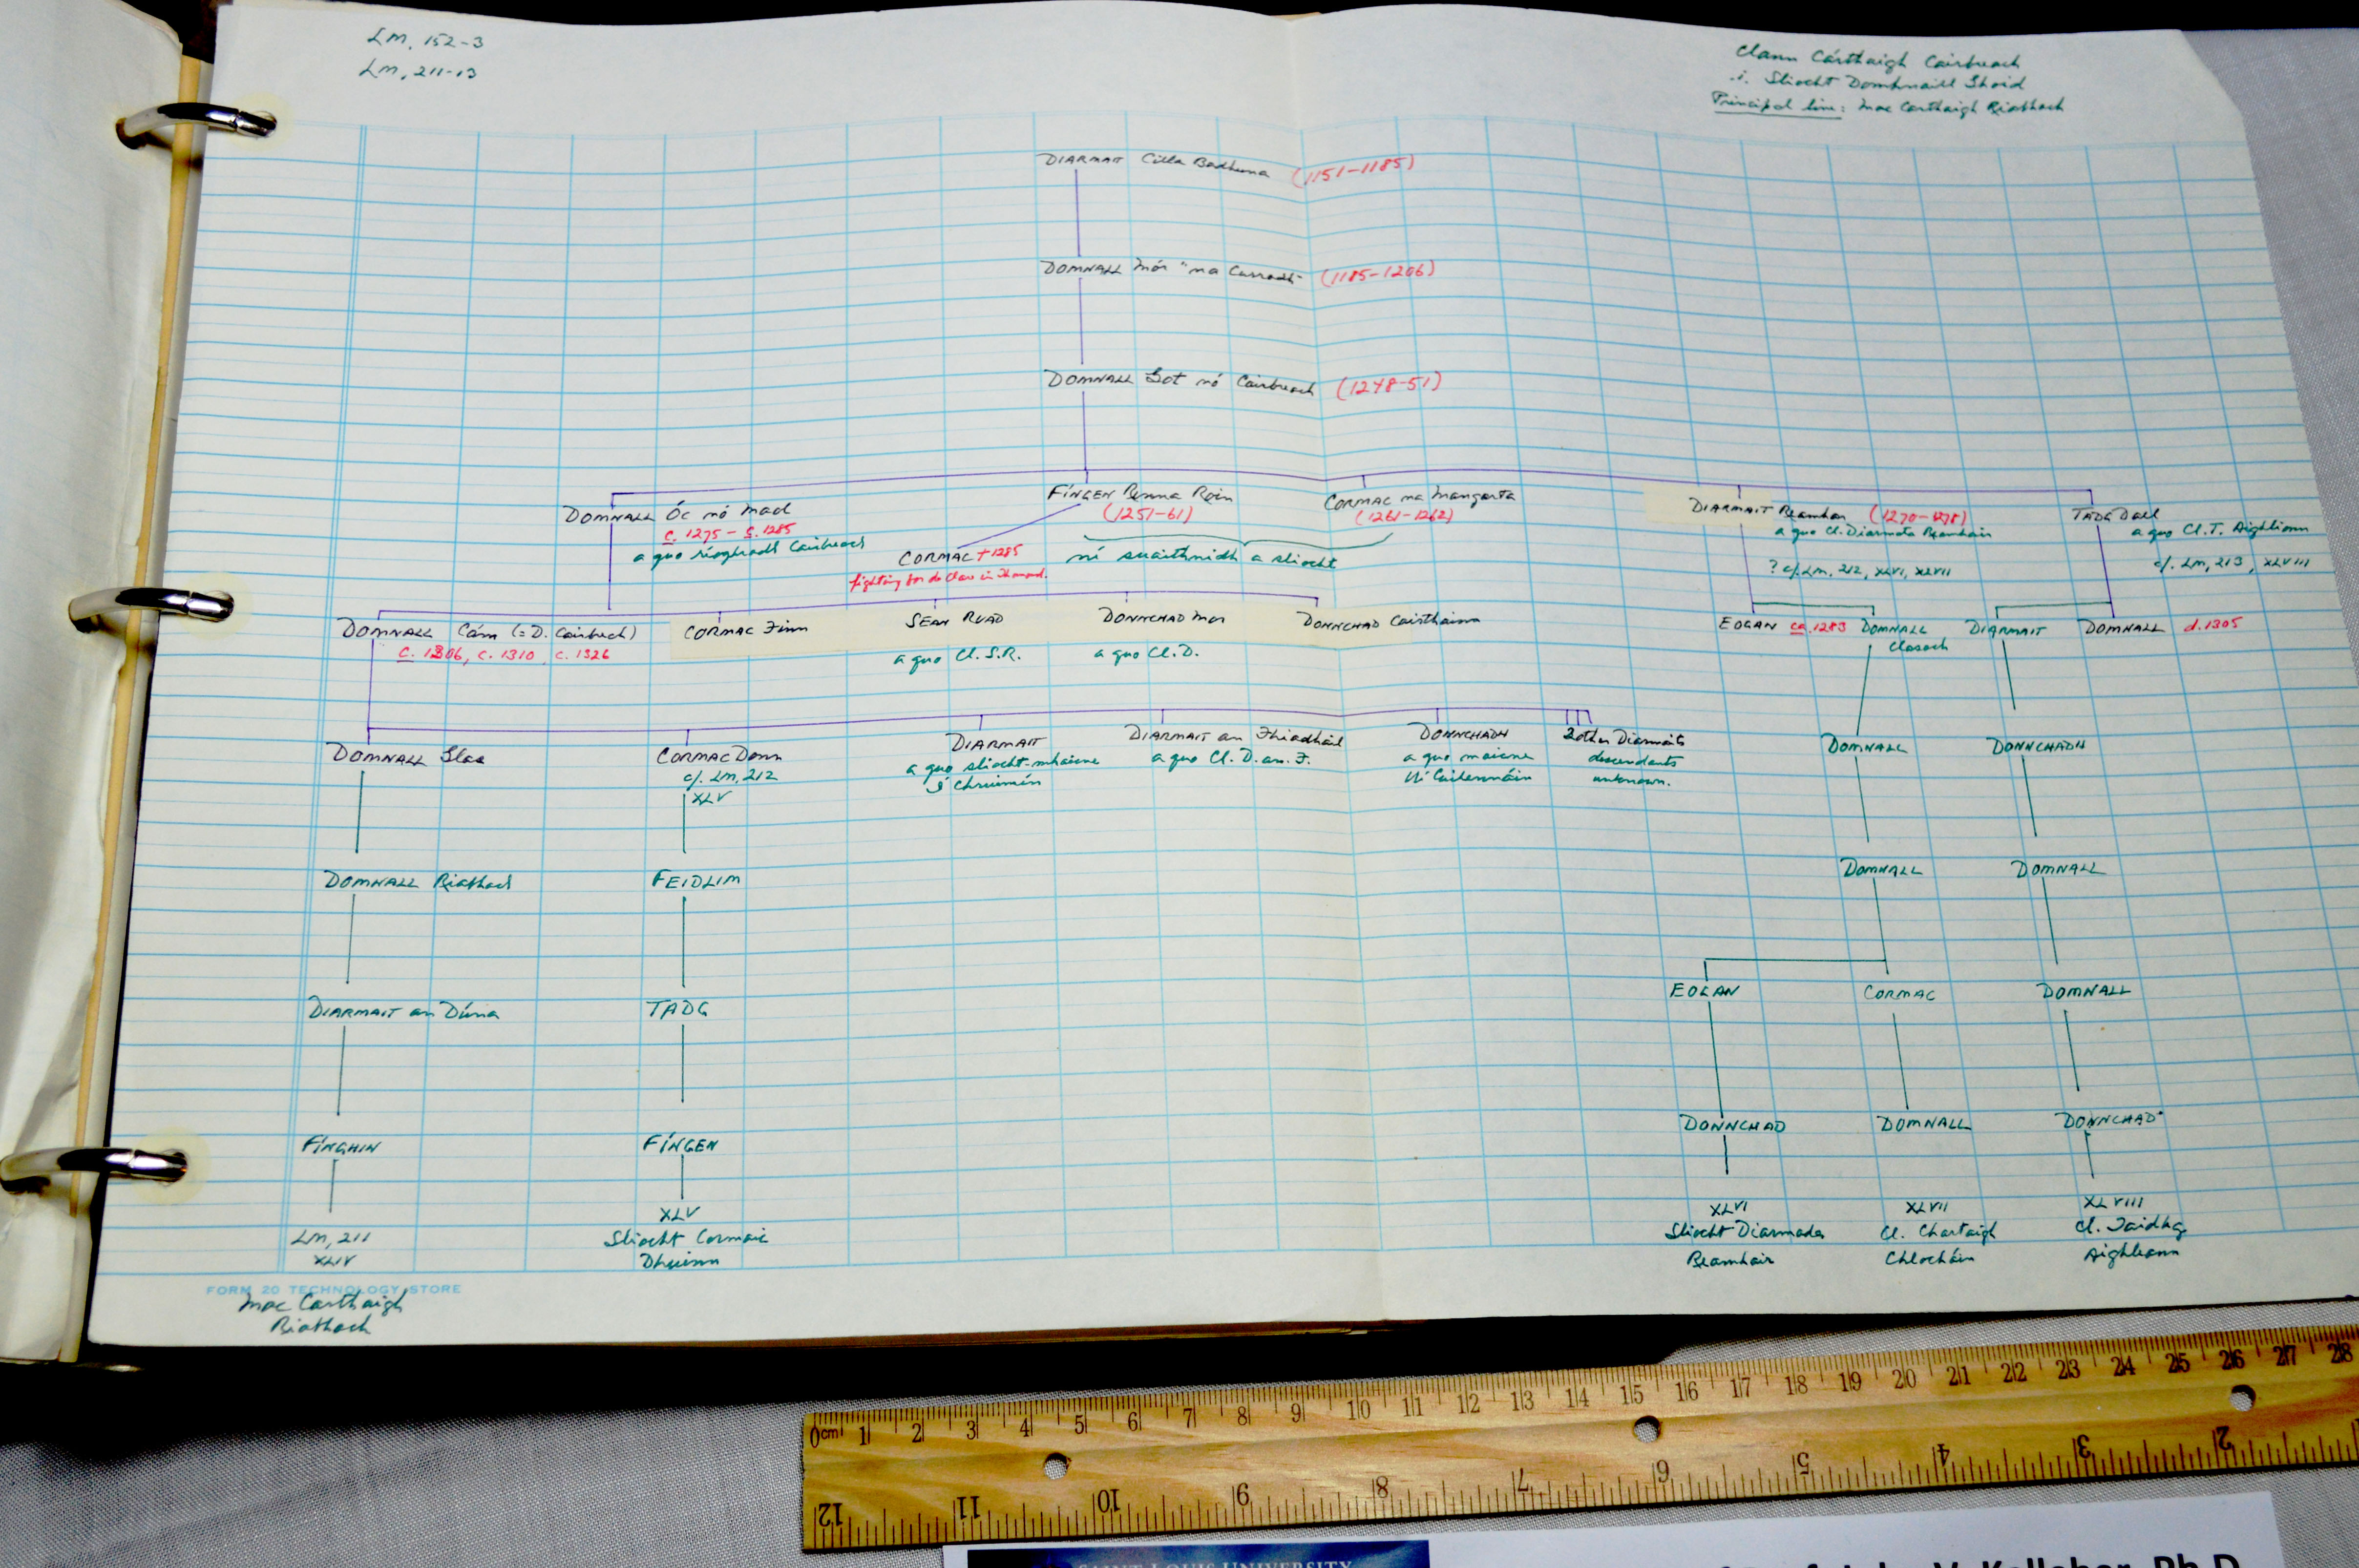 Lm, 152-3
Lm, 211-13
Clann Cárthaigh Cairbreach
.i. Sliocht Domhnaill Ghoid
Principal line: Mac Carthaigh Riabhach
DIARMAIT Cille Badhuna (1151-1185)
DOMNALL Mór "na Curradh" (1185-1206)
DOMNALL Got nó Cairbreach (1248-51)
DOMNALL Óc nó Mael
c. 1275 - c. 1285
a quo ríoghradh Cairbreach
FÍNGEN Renna Róin
(1251-61)
CORMAC na Mangarta
(1261-1262)
ní suaithnidh a sliocht
CORMAC +1285
fighting for de Clare in Thomond.
DIARMAIT Reamhar (1270-1278)
a quo Cl. Diarmata Reamhair
? c/. Lm, 212, XLVI, XLVII
TADG Dall
a quo Cl. T. Aighlionn
c/. Lm, 213, XLVIII
DOMNALL Cám (=D. Cairbrech)
c. 1306, c. 1310, c. 1326
CORMAC Finn
SEAN RUAD
a quo Cl. S.R.
DONNCHAD Mor
a quo Cl. D.
DONNCHAD Cairthainn
EOGAN ca. 1283
DOMNALL
Clasach
DIARMAIT
DOMNALL d. 1305
DOMNALL Glas
CORMAC Donn
c/. Lm, 212
XLV
DIARMAIT
a quo sliocht-mhaicne
Í Chruimín
DIARMAIT an Fhiadhail
a quo Cl. D. an. F.
DONNCHADH
a quo maicne
Uí Cuilennáin
2 other Diarmaits
descendants
unknown.
DOMNALL
DONNCHADH
DOMNALL Riabhach
FEIDLIM
DOMNALL
DOMNALL
DIARMAIT an Dúna
TADG
EOGAN
CORMAC
DOMNALL
FÍNGHIN
FÍNGEN
DONNCHAD
DOMNALL
DONNCHAD
Lm, 211
XLIV
Mac Carthaigh
Riabhach
XLV
Sliocht Cormaic
Dhuinn
XLVI
Sliocht Diarmada
Reamhair
XLVII
Cl. Chartaigh
Chlocháin
XLVIII
Cl. Taidhg
Aighleann
FORM 20 TECHNOLOGY STORE
0cm 1 2 3 4 5 6 7 8 9 10 11 12 13 14 15 16 17 18 19 20 21 22 23 24 25 26 27 28
12 11 10 9 8 7 6 5 4 3 2
SAINT LOUIS UNIVERSITY
V. Kelleher, Ph.D.